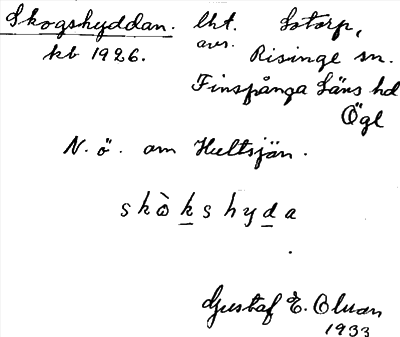 Skogshyddan. lht. Sotorp,
kb 1926. avs. Risinge sn.
Finspånga Läns hd
Ögl
N. ö. om Hultsjön.
skò̀kshyda
Gustaf E. Olson
1933